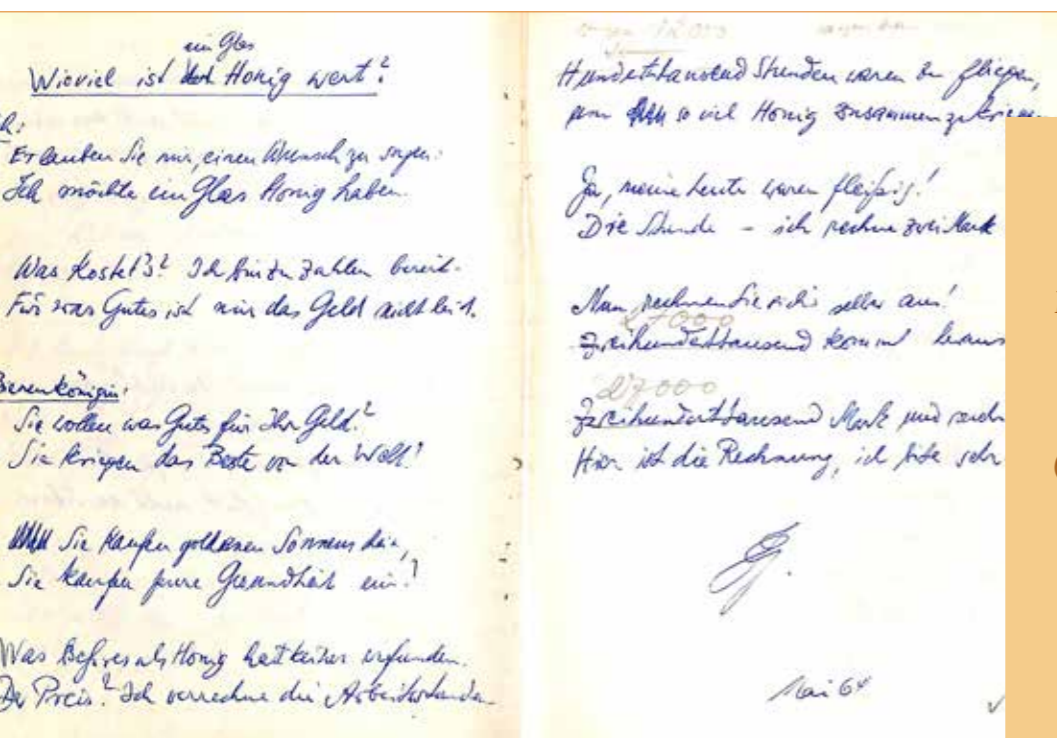 ein Glas
Wieviel ist Honig wert?
Erlauben Sie mir, einen Wunsch zu sagen:
Ich möchte ein Glas Honig haben.
Was kostet's? Ich bin zu zahlen bereit.
Für was Gutes ist mir das Geld nicht leid.
Bienenkönigin:
Sie wollen was Gutes für Ihr Geld?
Sie kriegen das Beste von der Welt!
Sie kaufen goldenen Sonnenschein,
Sie kaufen pure Gesundheit ein!
Was Beßres als Honig hat keiner erfunden.
Der Preis? Ich verrechne die Arbeitsstunden.
12000
Hunderttausend Stunden waren zu fliegen,
um so viel Honig zusammenzukriegen.
Ja, meine Leute waren fleißig!
Die Stunde – ich rechne zwei Mark
Nun, rechnen Sie sich's selber aus!
27000
Zweihunderttausend kommt heraus
27000
Zweihunderttausend Mark und
Hier ist die Rechnung, ich bitte sehr
Mai 64